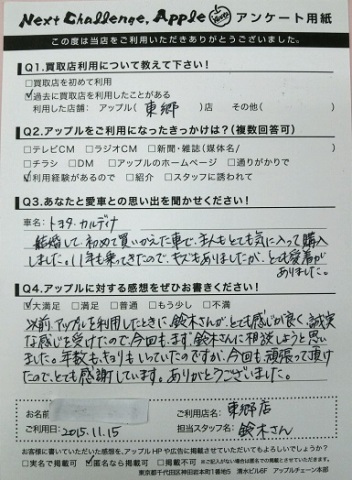 Next Challenge. Apple Hero アンケート用紙
この度は当店をご利用いただきありがとうございました。
Q1.買取店利用について教えて下さい!
□買取店を初めて利用
☑過去に買取店を利用したことがある
利用した店舗: アップル( 東郷 )店 その他( )
Q2.アップルをご利用になったきっかけは?(複数回答可)
□テレビCM □ラジオCM □新聞・雑誌(媒体名/ )
□チラシ □DM □アップルのホームページ □通りがかりで
☑利用経験があるので □紹介 □スタッフに誘われて
Q3.あなたと愛車との思い出を聞かせください!
車名:トヨタ・カルディナ
結婚して、初めて買いかえた車で、主人もとても気に入って購入
しました。11年も乗ってきたので、キズもありましたが、とても愛着が
ありました。
Q4.アップルに対する感想をぜひお書きください!
☑大満足 □満足 □普通 □もう少し □不満
以前、アップルを利用したときに、鈴木さんが、とても感じが良く、誠実
な感じを受けたので、今回も、まず、鈴木さんに相談しようと思い
ました。年数も、キョリもいっていたのですが、今回も、頑張って頂け
たので、とても感謝しています。ありがとうございました。
お名前
ご利用店名: 東郷店
ご利用日: 2015.11.15
担当スタッフ名: 鈴木さん
お客様に書いていただいた感想を、アップルHPや広告に掲載させていただいてもよろしいでしょうか?
□実名で掲載可 ☑匿名なら掲載可 □掲載不可 ※ご記入がない場合は匿名とさせていただきます。
東京都千代田区神田岩本町1番地5 清水ビル6F アップルチェーン本部